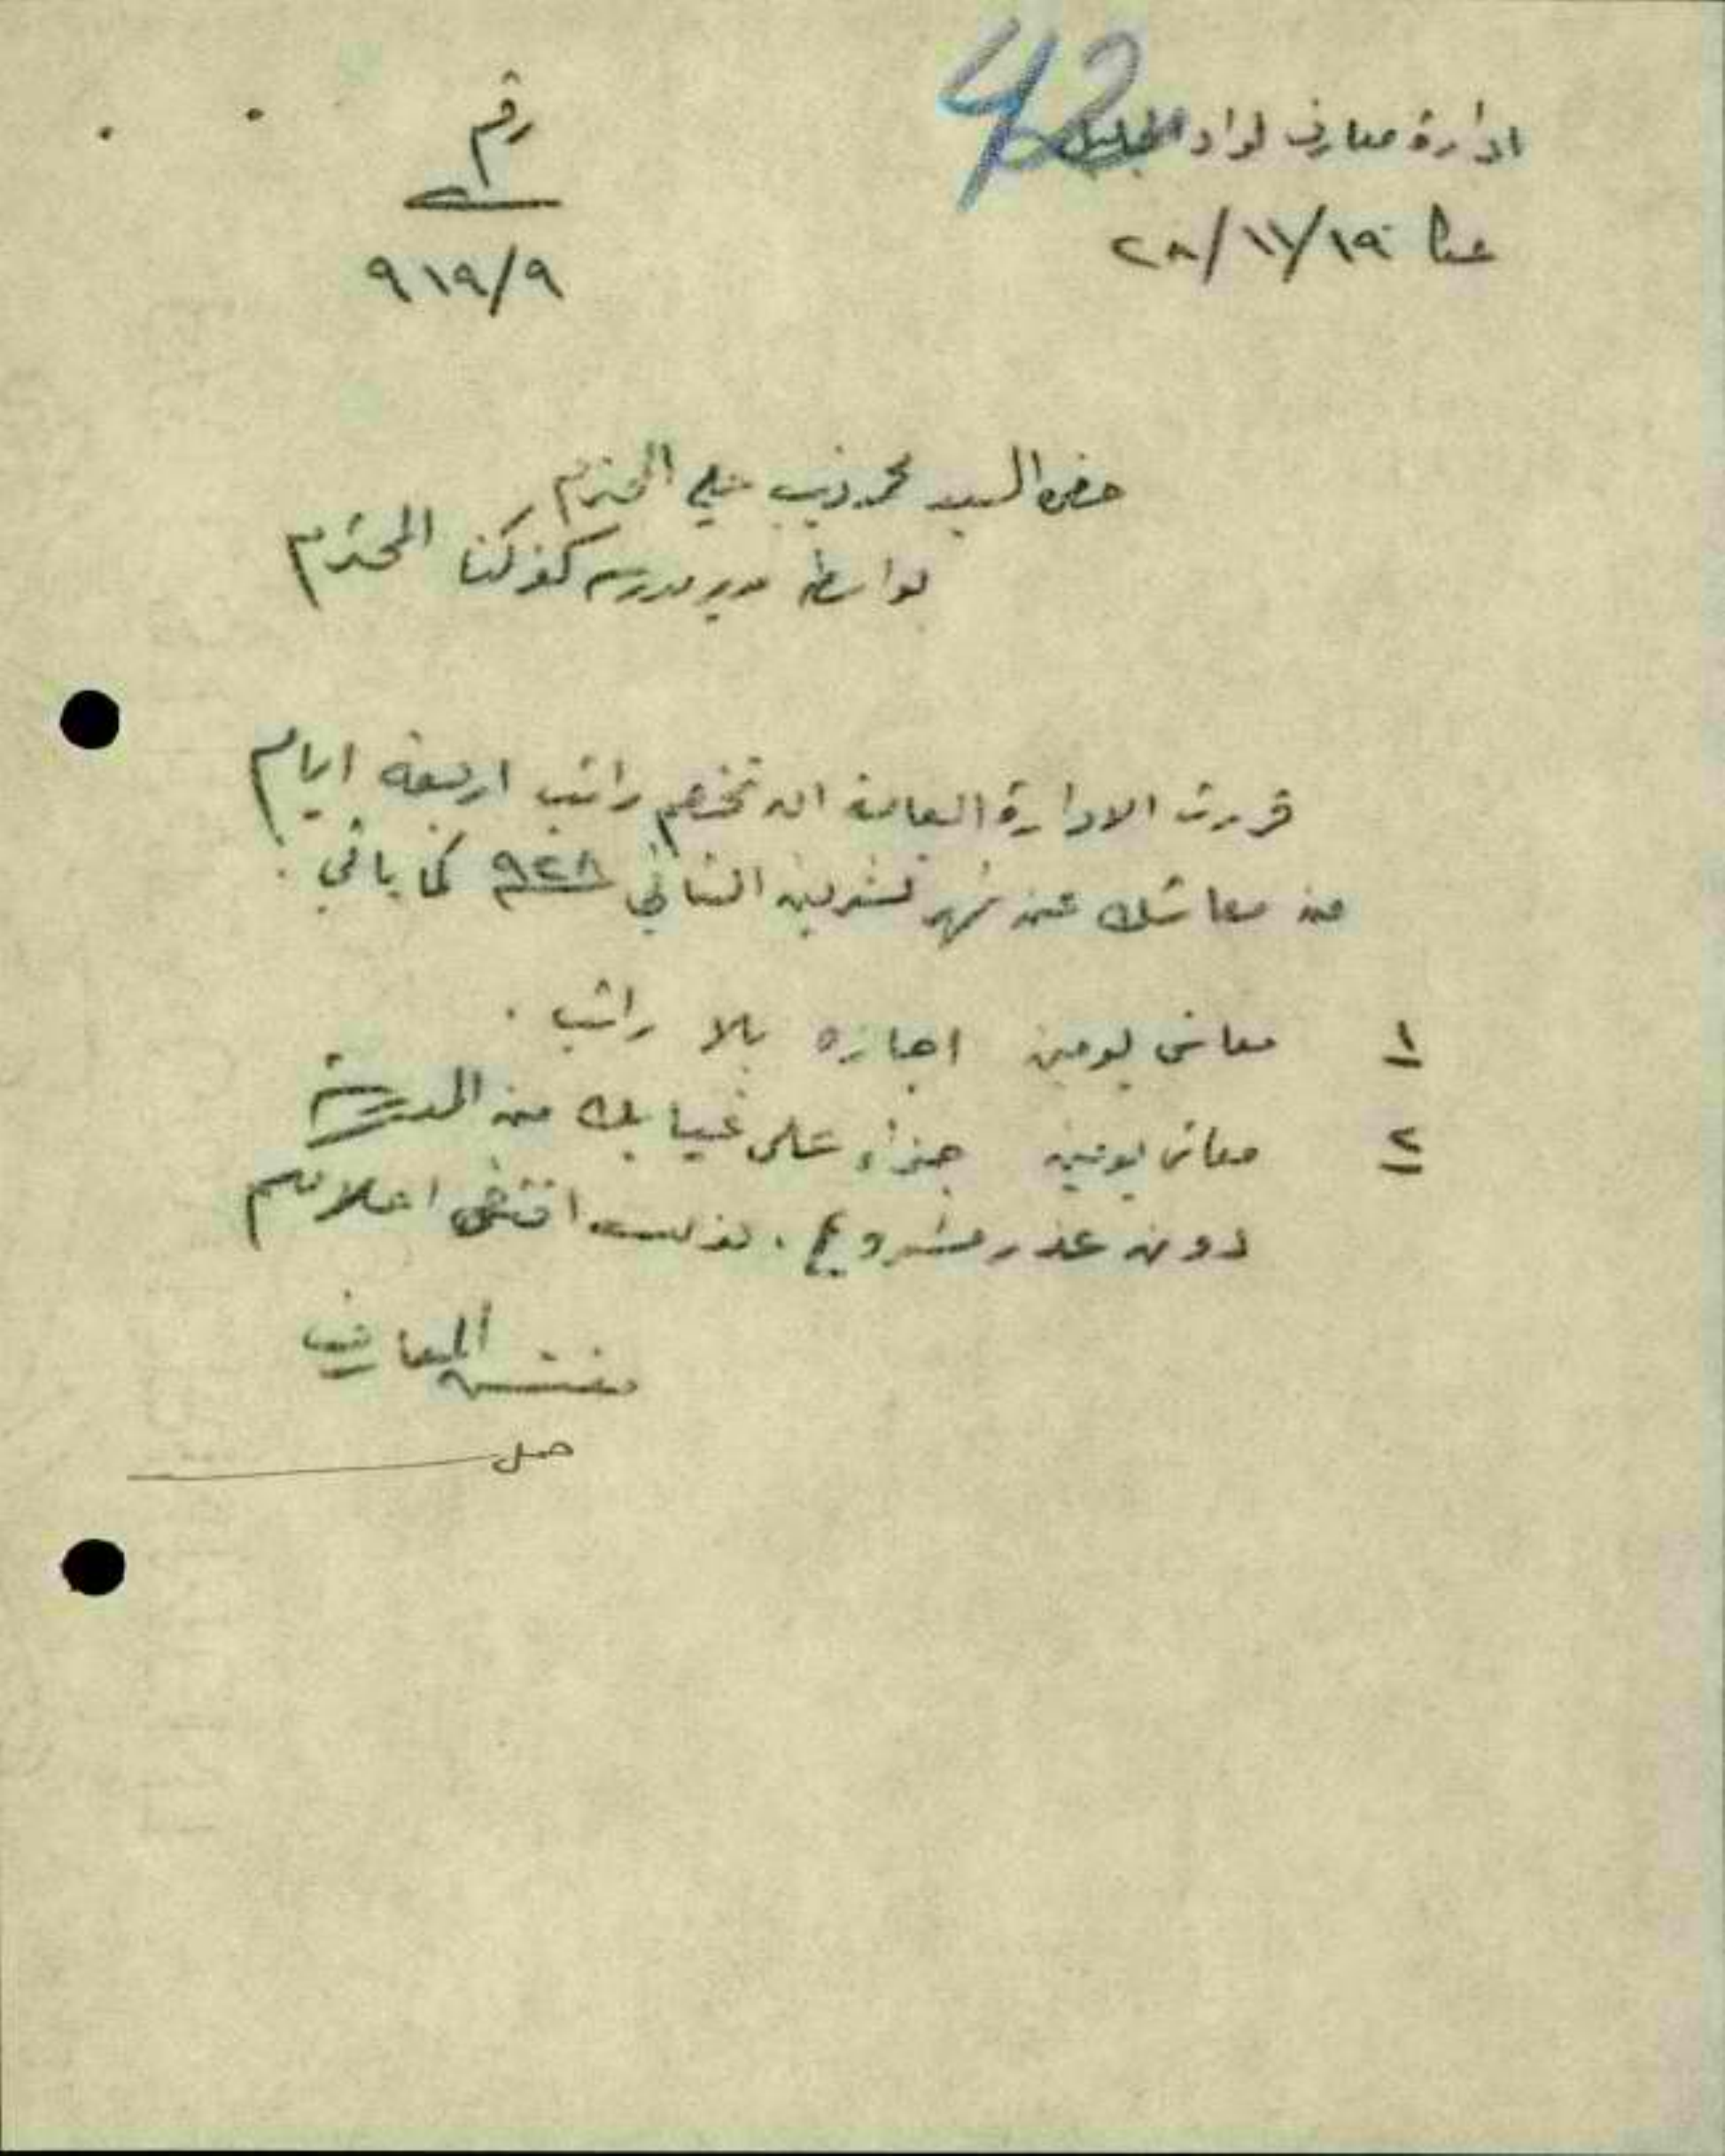 42
ادارة معارف لواء الجليل
رقم
عكا ١٩/١١/٢٨
٩١٩/٩
حضرة السيد محمد ذيب المحترم
بواسطة مدير مدرسة كفركنا المحترم
قررت الادارة العامة ان تخصم راتب اربعة ايام
من معاشك عن شهر تشرين الثاني ٩٢٨ كما ياتي :
١ معاش يومين اجازه بلا راتب .
٢ معاش يومين جزاء على غيابك من المدرسة
دون عذر مشروع . لذلك اقتضى اعلامكم
مفتش المعارف